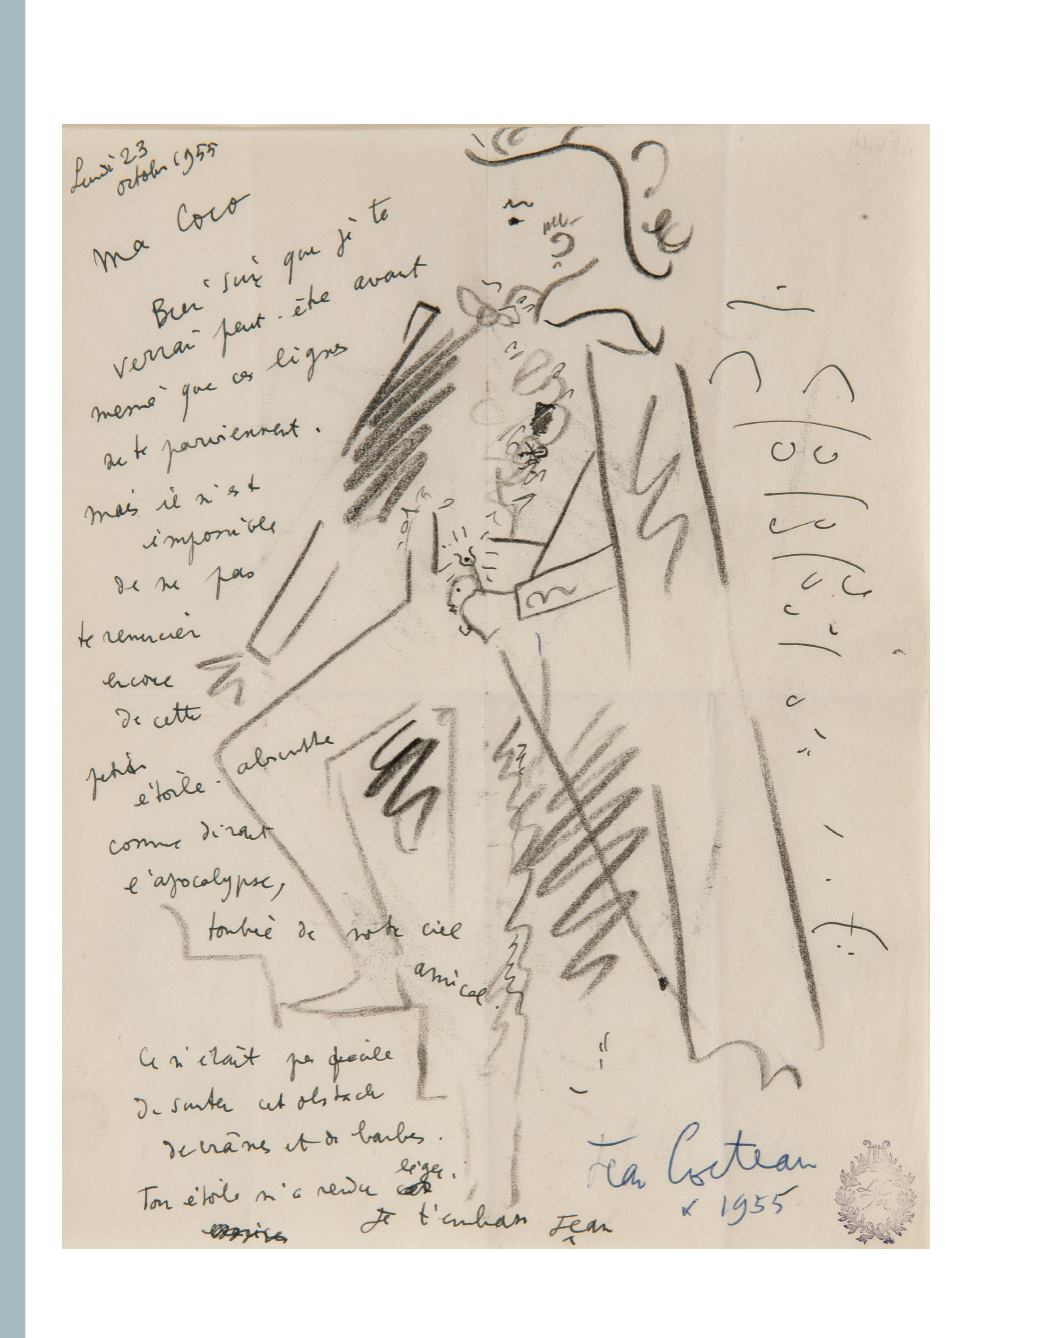 Lundi 23
octobre 1955
Ma Coco
Bien sûr que je te
verrai peut-être avant
même que ces lignes
ne te parviennent.
mais il m'est
impossible
de ne pas
te remercier
encore
de cette
petite
étoile absinthe
comme dirait
l'apocalypse,
tombée de notre ciel
amical.
Ce n'était pas facile
de sauter cet obstacle
de crânes et de barbes.
léger.
Ton étoile m'a rendu
Je t'embrasse Jean
Jean Cocteau
1955